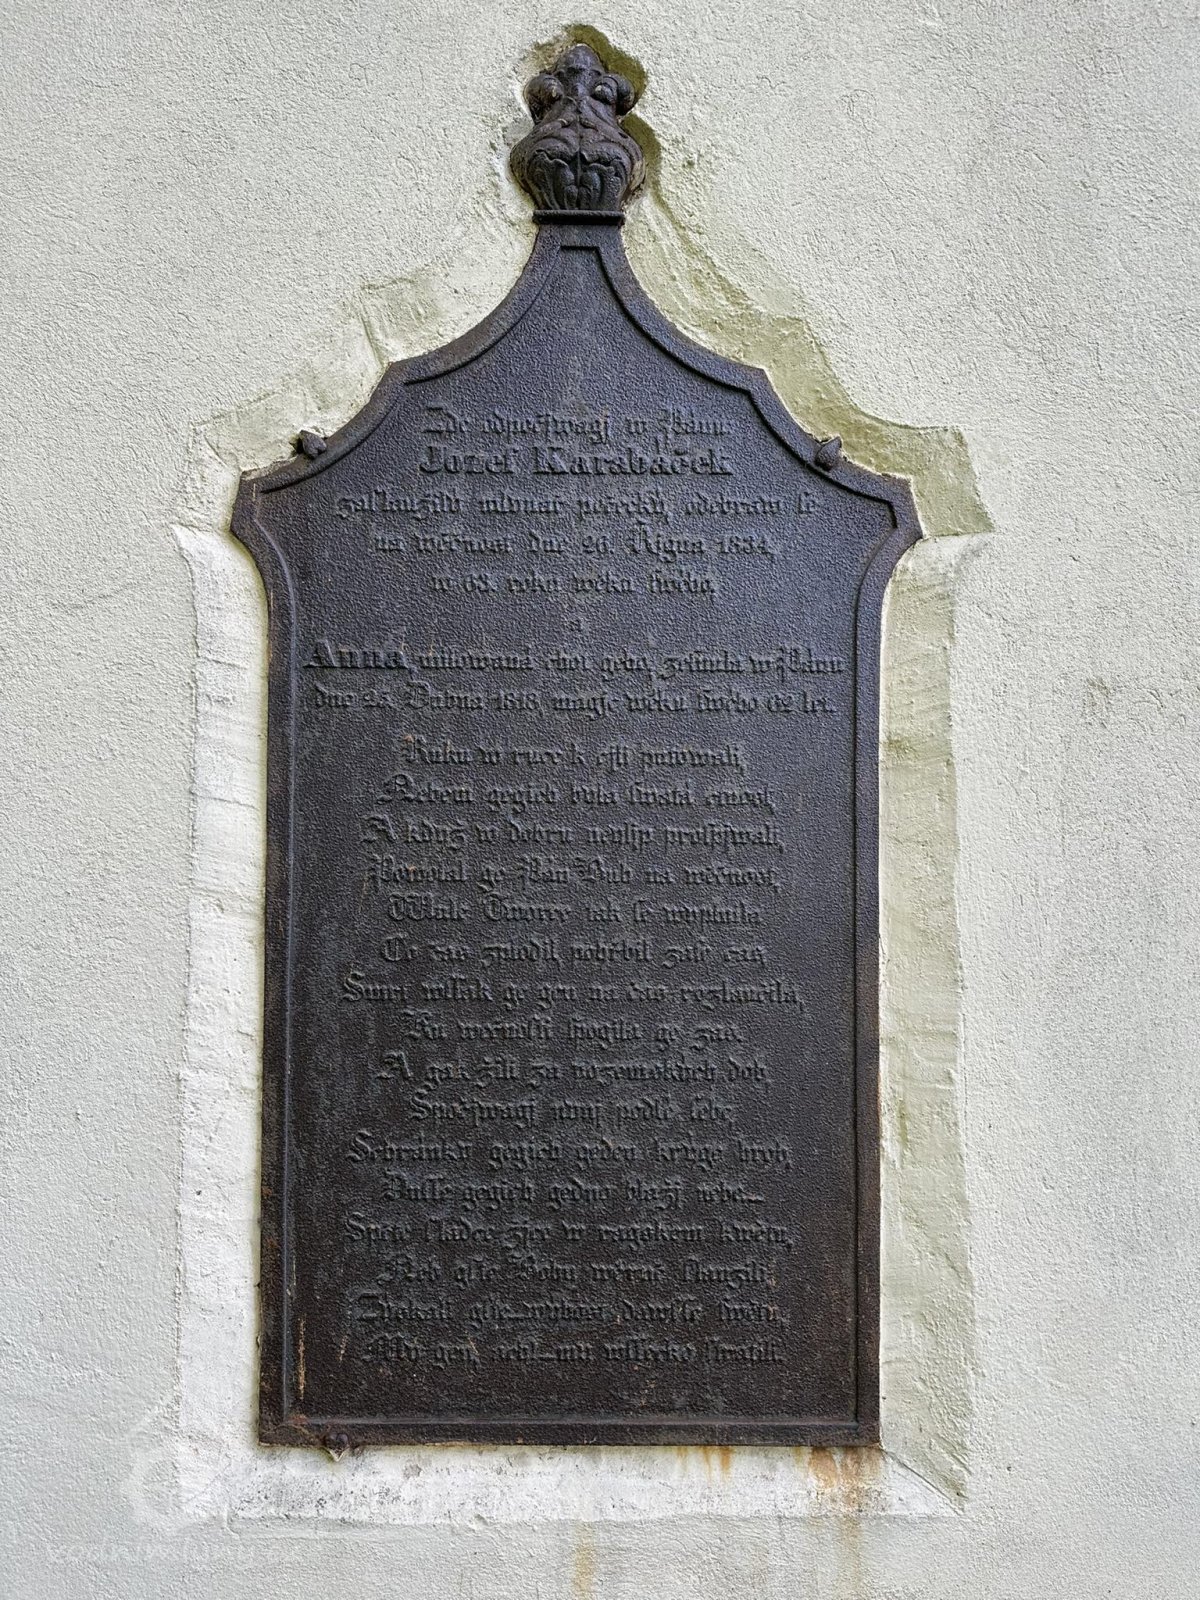 Zde odpočjwagj w Pánu
Jozef Karabáček
zaslaužilý mlynář pečecký, odebraw se
na wěčnost dne 26. Řígna 1834,
w 63. roku wěku swého,
a
Anna, milowaná choť geho, zesnula w Pánu
dne 25. Dubna 1818, magjc wěku swého 62 let.
Ruku w ruce k cjli putowali,
Neboť gegich byla swatá ctnost,
A když w dobru neylip prospjwali,
Powolal ge Pán Buh na wěčnost,
Wůle Tworce tak se wyplnila
Co čas zplodil, pohřbil zase čas,
Smrt wssak ge gen na čas rozlaučila,
Ku wěčnosti spogila ge zas.
A gak žili za pozemských dob,
Spočjwagj nynj podlé sebe,
Schránky gegich geden kryge hrob,
Dusse gegich gedno blažj nebe.
Spěte sladce zjce w ragském kwětu,
Neb gste Bohu wěrně slaužili
Zjskali gste wýhost dawsse swětu,
My gen, ach! my wssecko ztratili.